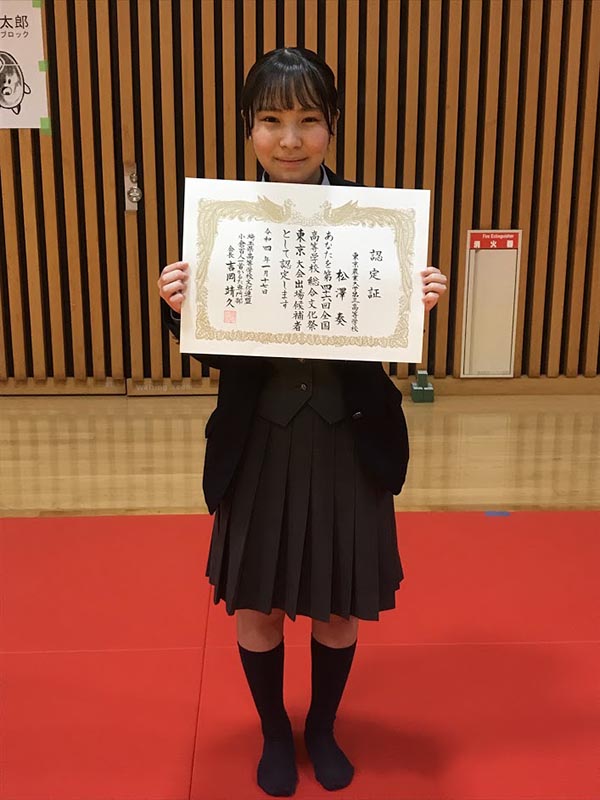 太郎
ブロック
認定証
東京農業大学第三高等学校
松澤 奏
あなたを第四十六回全国
高等学校総合文化祭
東京大会出場候補者
として認定します
令和四年一月十七日
埼玉県高等学校文化連盟
小倉百人一首かるた専門部
会長 吉岡 靖久
Fire Extinguisher
消火器